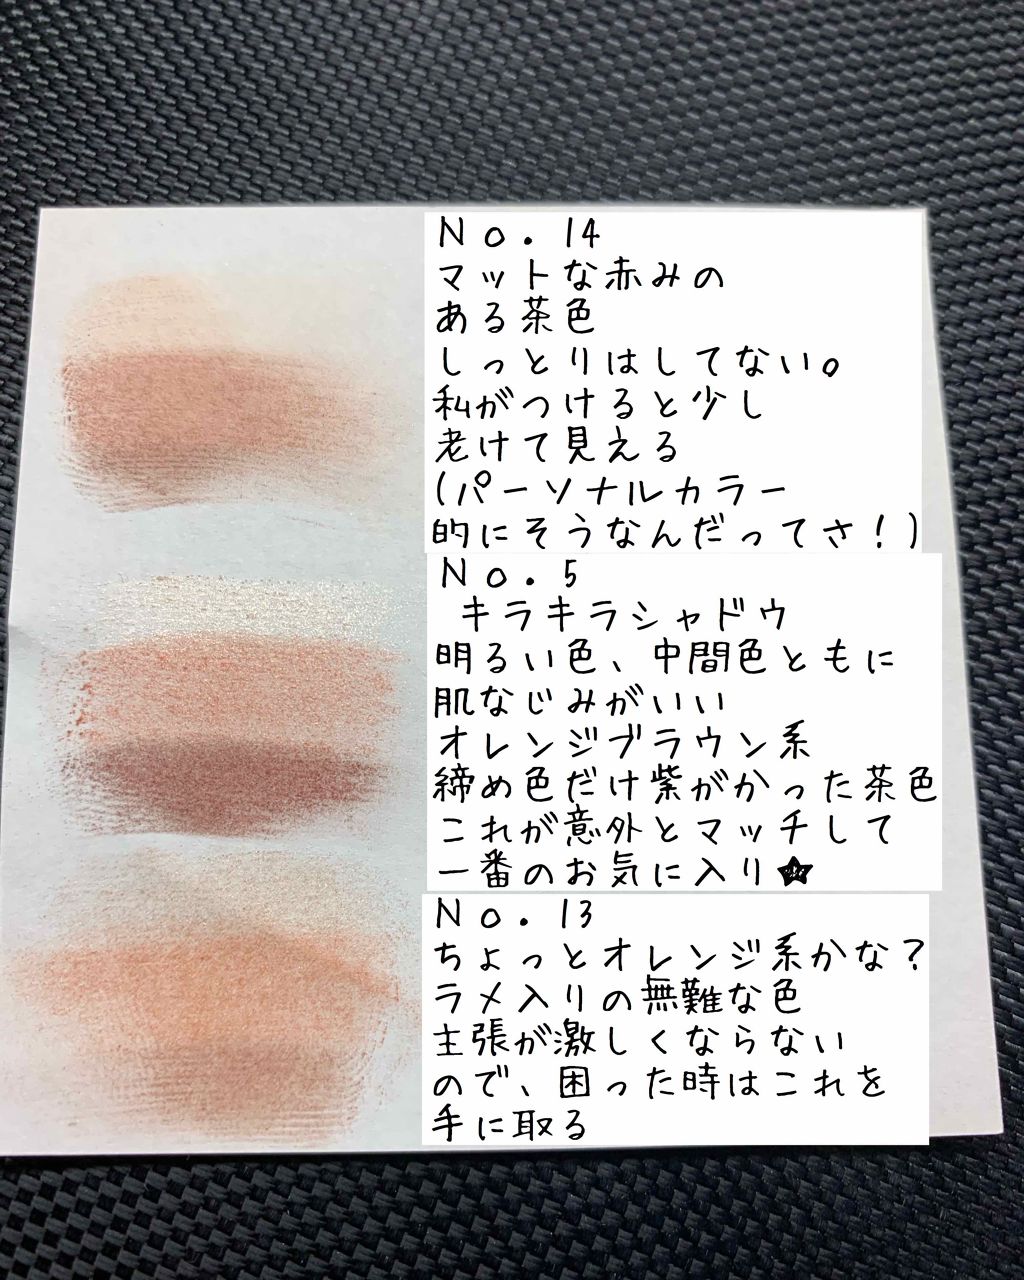 No.14
マットな赤みの
ある茶色
しっとりはしてない。
私がつけると少し
老けて見える
(パーソナルカラー
的にそうなんだってさ!)
No.5
キラキラシャドウ
明るい色、中間色ともに
肌なじみがいい
オレンジブラウン系
締め色だけ紫がかった茶色
これが意外とマッチして
一番のお気に入り★
No.13
ちょっとオレンジ系かな?
ラメ入りの無難な色
主張が激しくならない
ので、困った時はこれを
手に取る